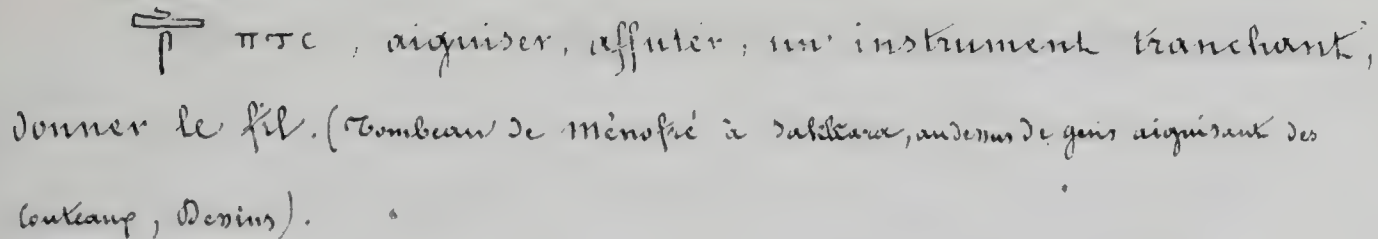 ⲠⲦⲤ, aiguiser, affuter, un instrument tranchant,
donner le fil. (Tombeau de Ménofré à Sakkara, audessus de gens aiguisant des
couteaux, Dessins).